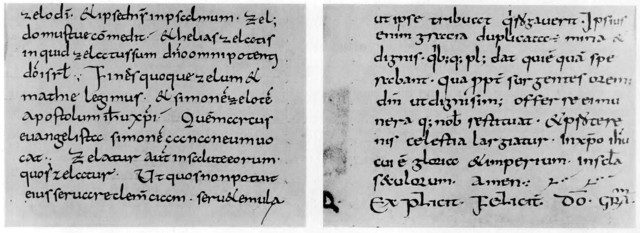 zelo dī. & ipse dn̄s in psalmum. Zel;
domus tue cōmedit. & helias zelatis
inquid zelatus sum dn̄o omnipotenti
dō isrl. Finesquoque zelum &
mathie legimus. & simonē zelotē
apostolum ihu xp̄i. Quem marcus
evangelista simonē cananeum uo
cat. Zelatur aut̄ in salute eorum.
quos zelatur. Ut quos non potuit
eius seruare clemenciam. seruet emula
ut ipse tribuat Ipsius
enim gracia duplicata &
dignis. q̄b; q; pl; dat quiē quā spe
rabant. qua ppt̄ surgentes orem;
dm̄ ut dignissim; offerre ei mu
nera q; nob̄ restituat. &
nis celestia largiatur. In xp̄o ihū
cui ē gloria & imperium. in scla
sęculorum. Amen.
Explicit. Felicit. DŌ. GRĀ.